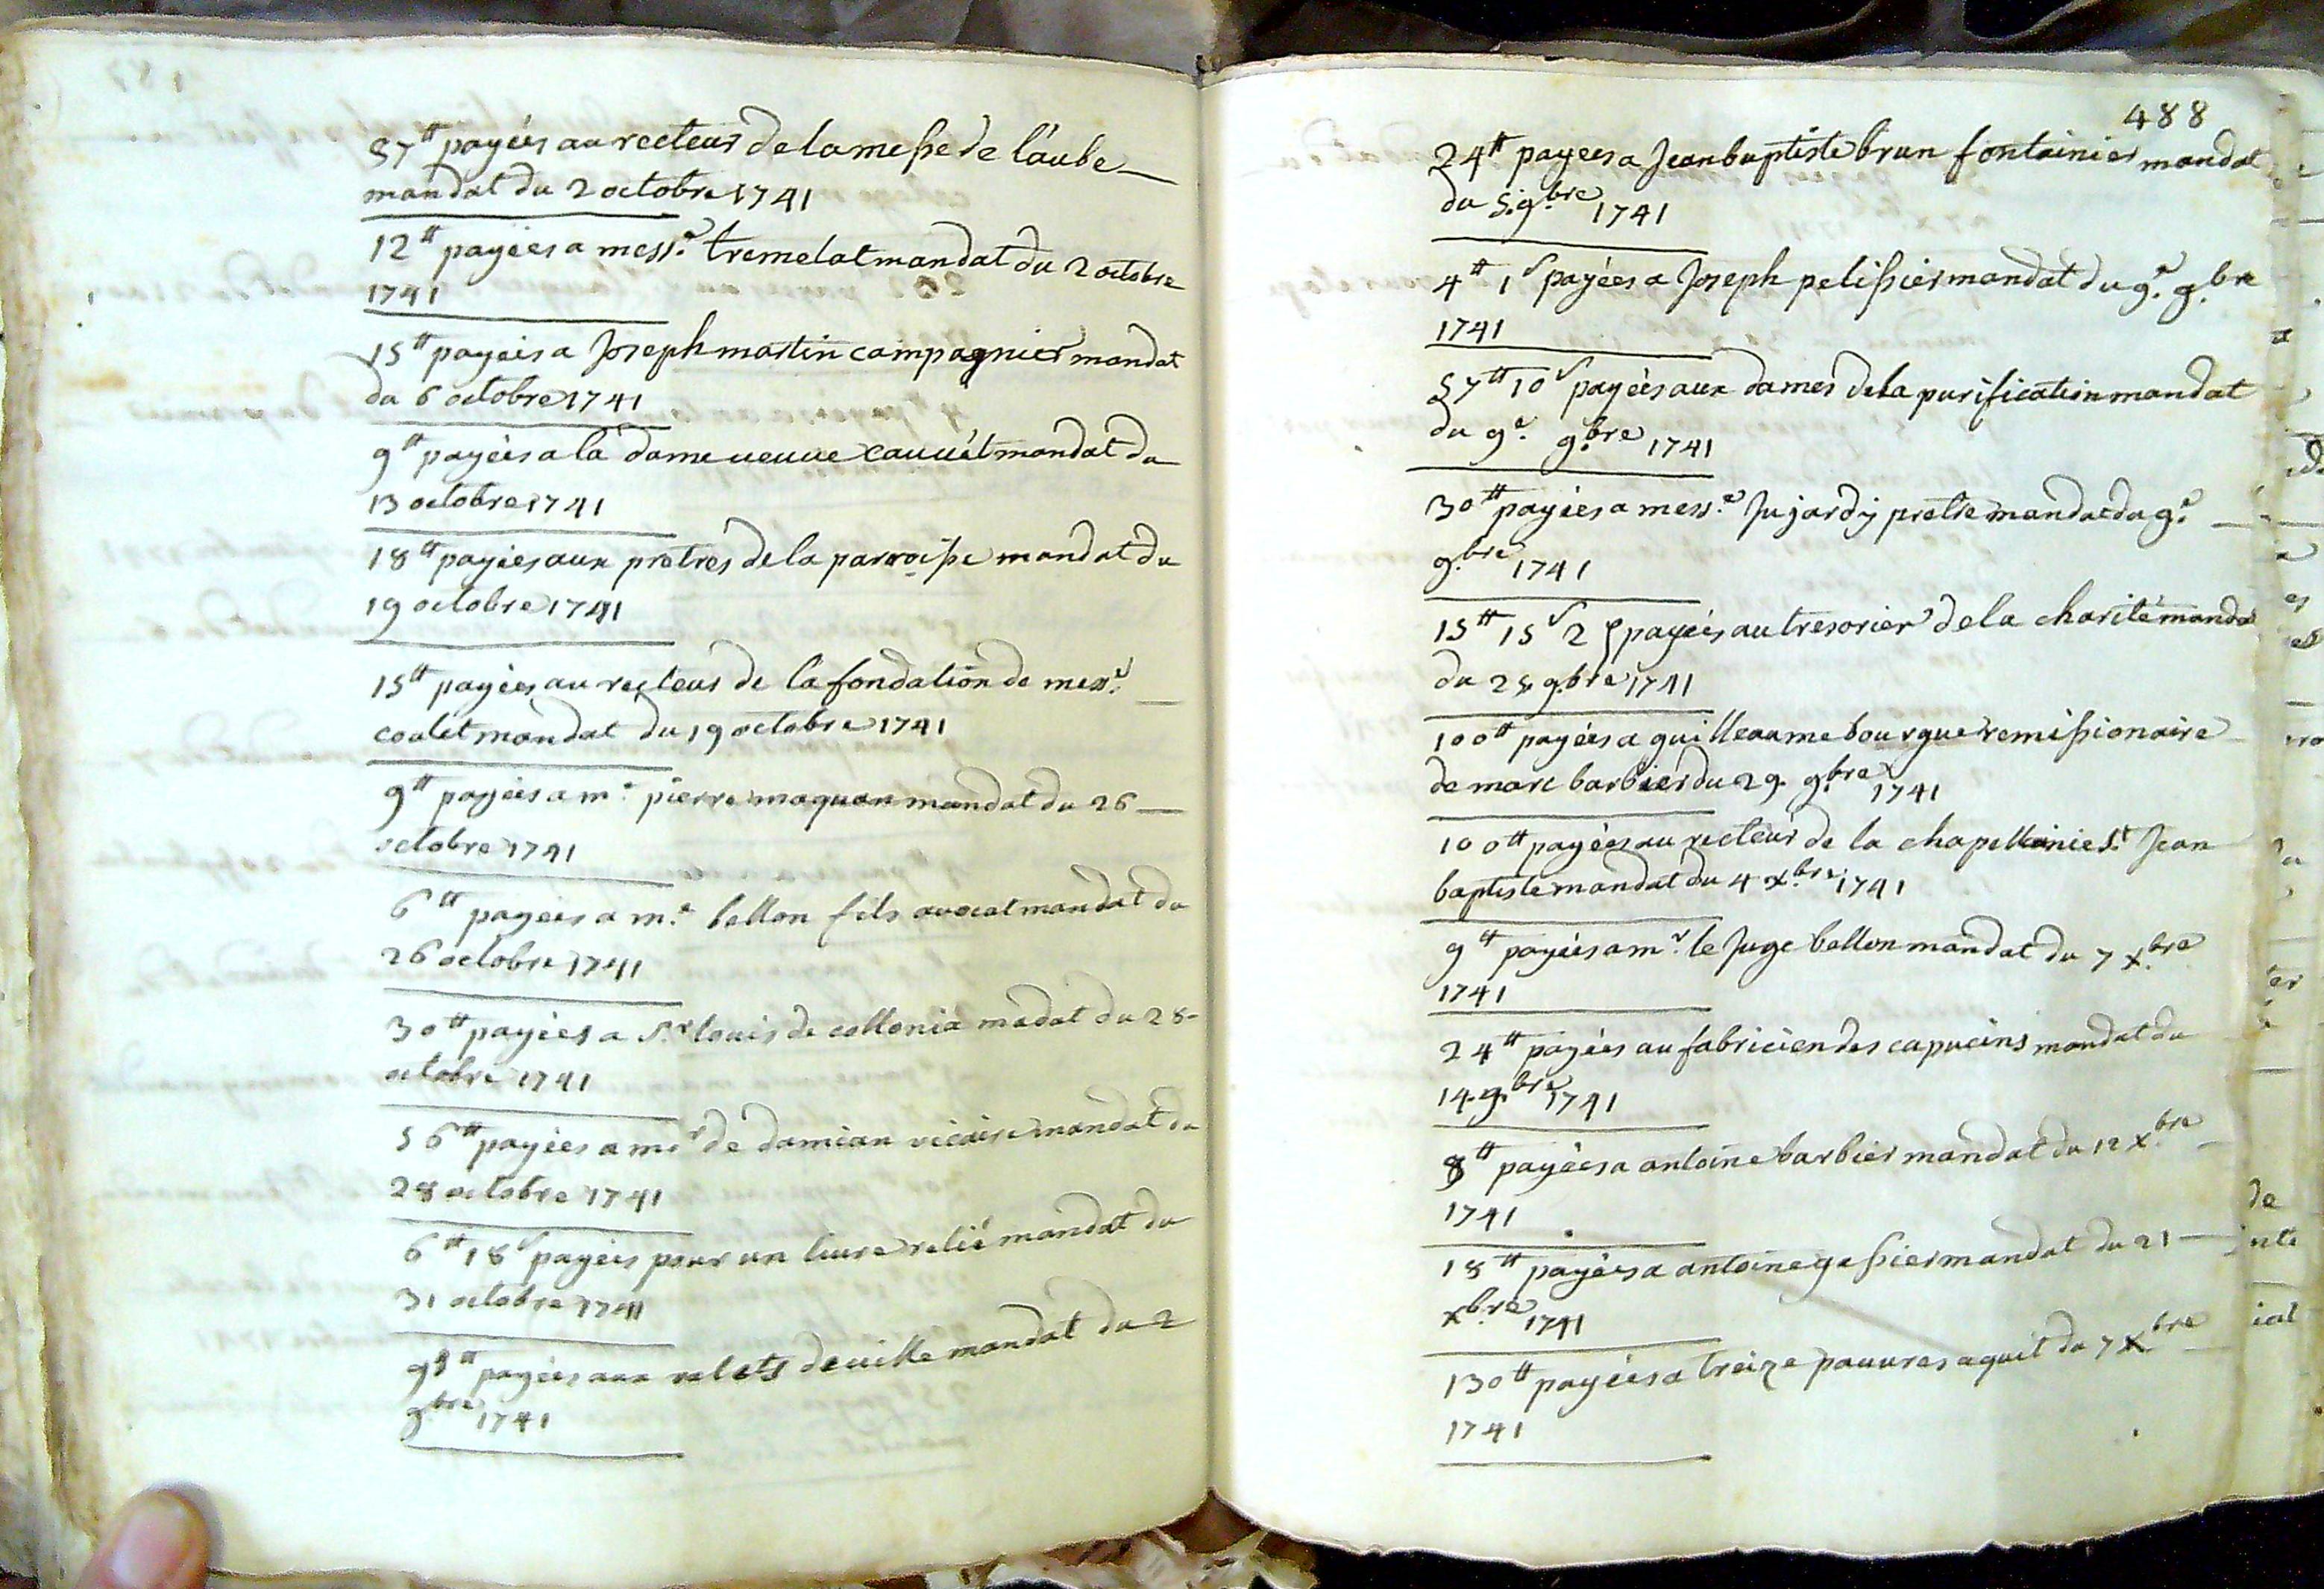 57tt payées au recteur de la messe de l'aube
mandat du 2 octobre 1741
12tt payées a messe. tremelat mandat du 2 octobre
1741
15tt payées a Joseph martin campagnier mandat
du 6 octobre 1741
9tt payées a la dame veuve cauvét mandat du
13 octobre 1741
18tt payées aux pretres de la parroisse mandat du
19 octobre 1741
15tt payées au recteur de la fondation de messe.
coulet mandat du 19 octobre 1741
9tt payées a me. pierre maquan mandat du 26
octobre 1741
6tt payées a me. bellon fils avocat mandat du
26 octobre 1741
30tt payées a Sr. louis de collonia madat du 28
octobre 1741
56tt payées a mr de damian vicaire mandat du
28 octobre 1741
6tt 18s payées pour un livre relié mandat du
31 octobre 1741
payées aux valets de ville mandat du 2
9bre 1741
488
24tt payees a Jean baptiste brun fontainier mandat
du 5. 9.bre 1741
4tt 1s payées a Joseph pelissier mandat du 9e. 9.bre
1741
57tt 10s payées aux dames de la purification mandat
du 9e. 9.bre 1741
30tt payées a messe. Jujardy pretre mandat du 9e.
9.bre 1741
15tt 15s 2 payées au tresorier de la charité manda
du 9.bre 1741
100tt payées a guilleaume bourgue remissionaire
de marc barbier du 29. 9.bre 1741
100tt payées au recteur de la chapellainie St. Jean
baptiste mandat du 4 x.bre 1741
9tt payées a mr. le Juge bellon mandat du 7 x.bre
1741
24tt payées au fabricien des capucins mandat du
14. 9.bre 1741
8tt payées a antoine barbier mandat du 12 x.bre
1741
18tt payées a antoine gassier mandat du 21
x.bre 1741
130tt payées a treize pauvres aquit du 7 x.bre
1741